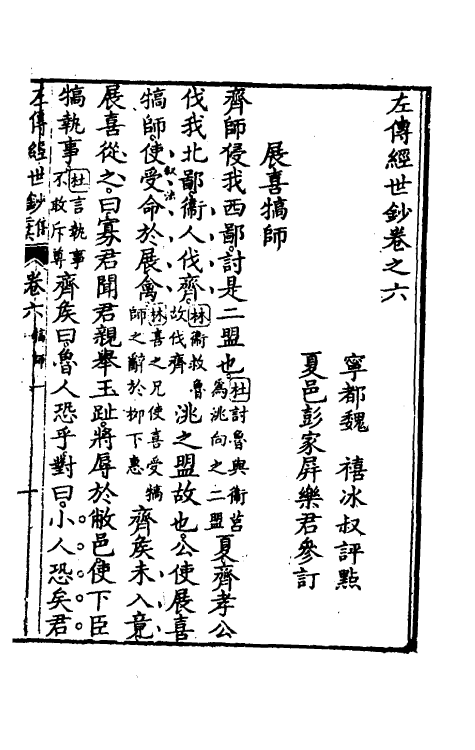 左傳經世鈔卷之六
寧都魏　禧冰叔評點
夏邑彭家屏樂君參訂
展喜犒師
齊師侵我西鄙討是二盟也杜討魯與衛莒為洮向之二盟夏齊孝公
伐我北鄙衛人伐齊林衛救魯故伐齊洮之盟故也公使展喜
犒師敘法使受命於展禽林喜之兄使喜受犒師之辭於柳下惠齊侯未入竟
展喜從之曰寡君聞君親舉玉趾將辱於敝邑使下臣
犒執事杜言執事不敢斥尊齊侯曰魯人恐乎對曰小人恐矣君
左傳經世鈔 卷六 犒師 一